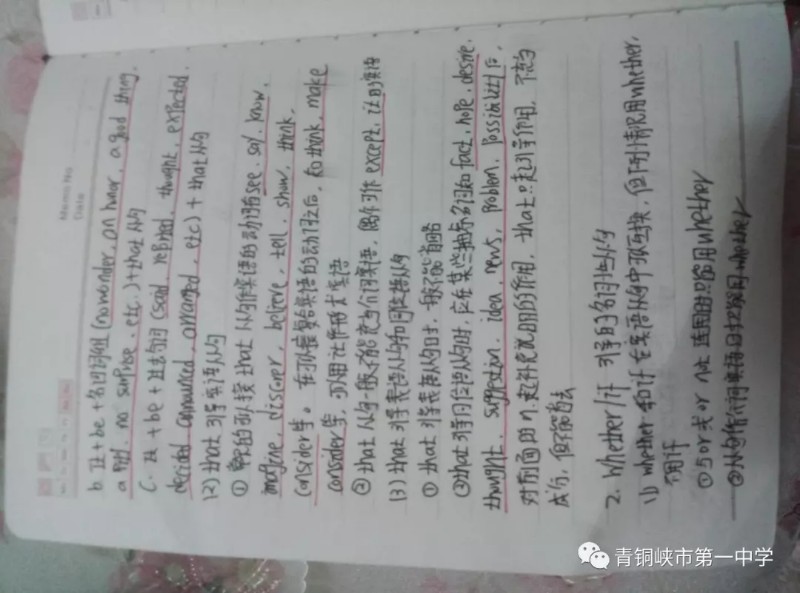 Memo No.
Date
b. It + be + 名词词组 (no wonder, an honor, a good thing,
a pity, no surprise, etc.) + that从句
C. It + be + 过去分词 (said, reported, thought, expected,
decided, announced, arranged, etc) + that从句
(2) that引导宾语从句
① 常见的可以接that从句作宾语的动词有see, say, know,
imagine, discover, believe, tell, show, think,
consider等。在可以接复合宾语的动词之后,如think, make
consider等,可以用it作形式宾语
② that从句一般不能充当介词宾语,偶尔可作except, in的宾语
(3) that引导表语从句和同位语从句
① that引导表语从句时,一般不能省略
② that引导同位语从句时,应在某些抽象名词如fact, hope, desire,
thought, suggestion, idea, news, problem, possibility后,
对前面的n.起补充说明的作用,that只起引导作用,不充当
成分,但不能省去
2. Whether/if 引导的名词性从句
(1) whether和if在宾语从句中可互换,但下列情况用whether,
不用if
①与or或or not连用时只能用whether
②从句作介词宾语时只能用whether
青铜峡市第一中学